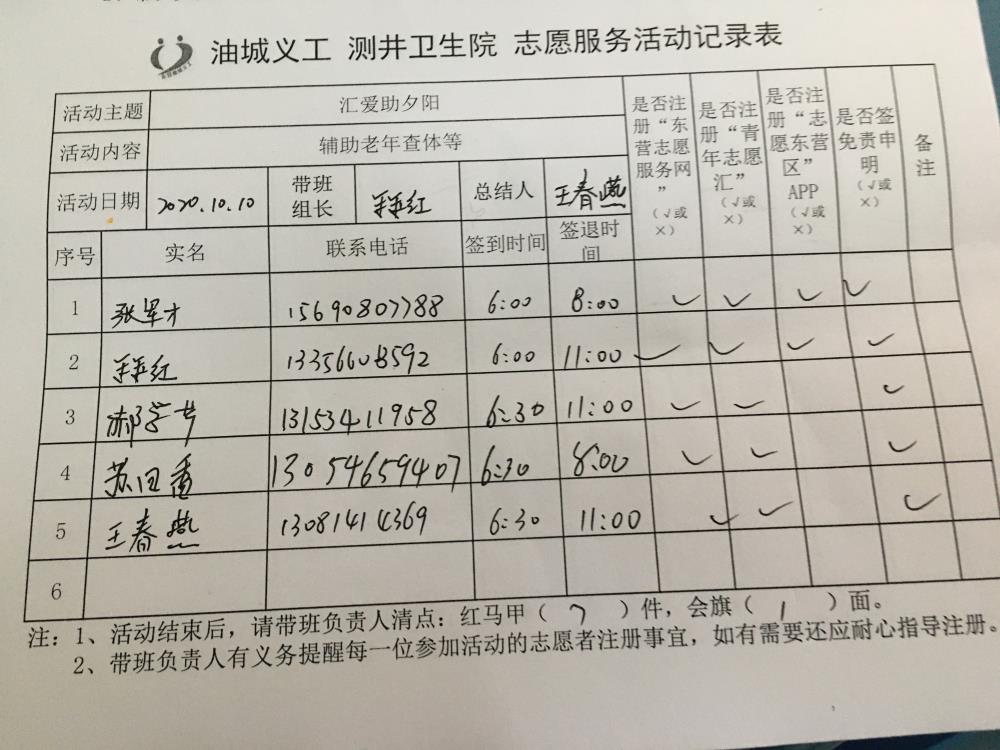 油城义工 测井卫生院 志愿服务活动记录表
活动主题 汇爱助夕阳 是否注册“东营志愿服务网”（√或×） 是否注册“青年志愿汇”（√或×） 是否注册“志愿东营区”APP（√或×） 是否签免责申明（√或×） 备注
活动内容 辅助老年查体等
活动日期 2020.10.10 带班组长 红 总结人 王春燕
序号 实名 联系电话 签到时间 签退时间
1 张军才 15690807788 6:00 8:00 ✓ ✓ ✓ ✓
2 红 13356608592 6:00 11:00 ✓ ✓ ✓ ✓
3 郝 13153411958 6:30 11:00 ✓ ✓ ✓
4 苏 13054659407 6:30 8:00 ✓ ✓ ✓
5 王春燕 13081414369 6:30 11:00 ✓ ✓ ✓
6
注：1、活动结束后，请带班负责人清点：红马甲（7）件，会旗（1）面。
2、带班负责人有义务提醒每一位参加活动的志愿者注册事宜，如有需要还应耐心指导注册。